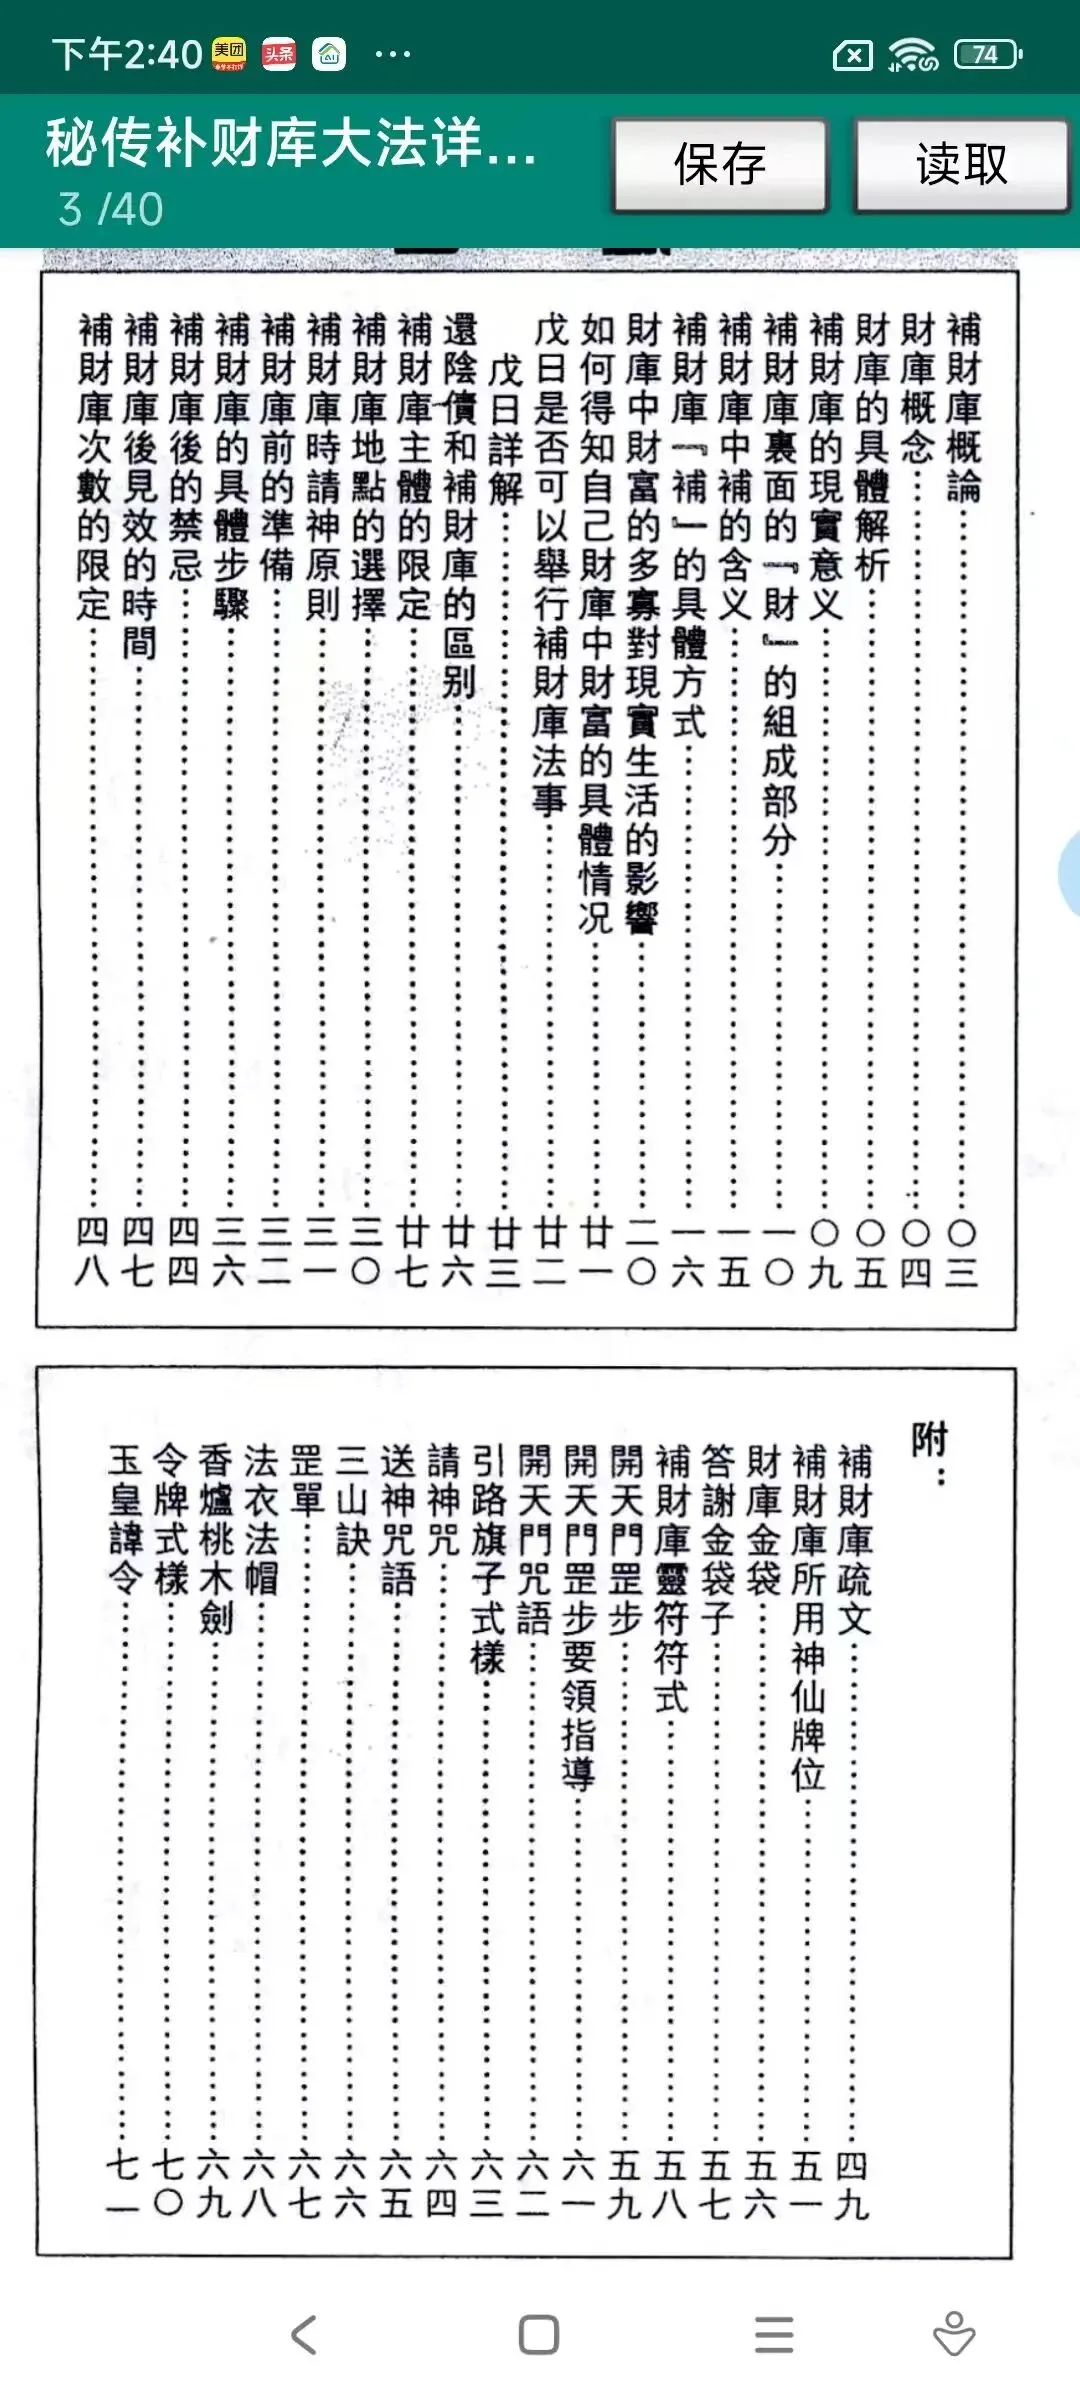 下午2:40
美团
头条
AI
74
秘传补财库大法详...
3 /40
保存
读取
補財庫概論……〇三
財庫概念……〇四
財庫的具體解析……〇五
補財庫的現實意义……〇九
補財庫裏面的『財』的組成部分……一〇
補財庫中補的含义……一五
補財庫『補』的具體方式……一六
財庫中財富的多寡對現實生活的影響……二〇
如何得知自己財庫中財富的具體情况……廿一
戊日是否可以舉行補財庫法事……廿二
戊日詳解……廿三
還陰債和補財庫的區别……廿六
補財庫主體的限定……廿七
補財庫地點的選擇……三〇
補財庫時請神原則……三一
補財庫前的準備……三二
補財庫的具體步驟……三六
補財庫後的禁忌……四四
補財庫後見效的時間……四七
補財庫次數的限定……四八
附：
補財庫疏文……四九
補財庫所用神仙牌位……五一
財庫金袋……五六
答謝金袋子……五七
補財庫靈符符式……五八
開天門罡步……五九
開天門罡步要領指導……六一
開天門咒語……六二
引路旗子式樣……六三
請神咒……六四
送神咒語……六五
三山訣……六六
罡單……六七
法衣法帽……六八
香爐桃木劍……六九
令牌式樣……七〇
玉皇諱令……七一